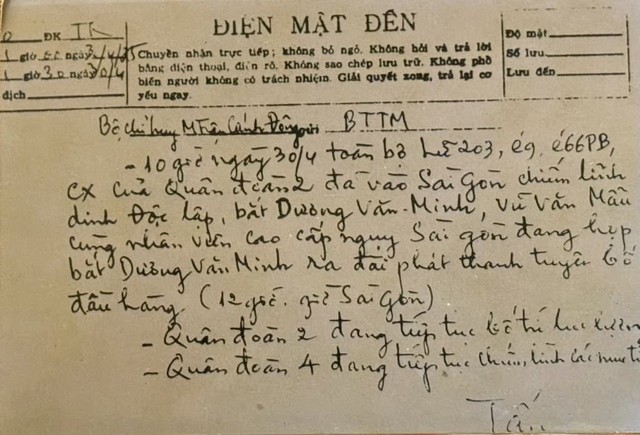 ĐIỆN MẬT ĐẾN
ĐK
1 giờ ngày 30/4/75
1 giờ 30 ngày 30/4
dịch
Chuyên nhận trực tiếp; không bỏ ngỏ. Không hỏi và trả lời
bằng điện thoại, điện rõ. Không sao chép lưu trữ. Không phổ
biến người không có trách nhiệm. Giải quyết xong, trả lại cơ
yếu ngay.
Độ mật:
Số lưu:
Lưu đến:
Bộ chỉ huy MTrận Cánh Đông gửi BTTM
- 10 giờ ngày 30/4 toàn bộ Lữ 203, é9. é66PB,
CX của Quân đoàn 2 đã vào Sài Gòn chiếm lĩnh
dinh Độc lập, bắt Dương Văn Minh, Vũ Văn Mẫu
cùng nhân viên cao cấp ngụy Sài gòn đang họp
bắt Dương Văn Minh ra đài phát thanh tuyên bố
đầu hàng (12 giờ. giờ Sài Gòn)
- Quân đoàn 2 đang tiếp tục bố trí lực lượng
- Quân đoàn 4 đang tiếp tục chiếm lĩnh các mục ti
Tấn